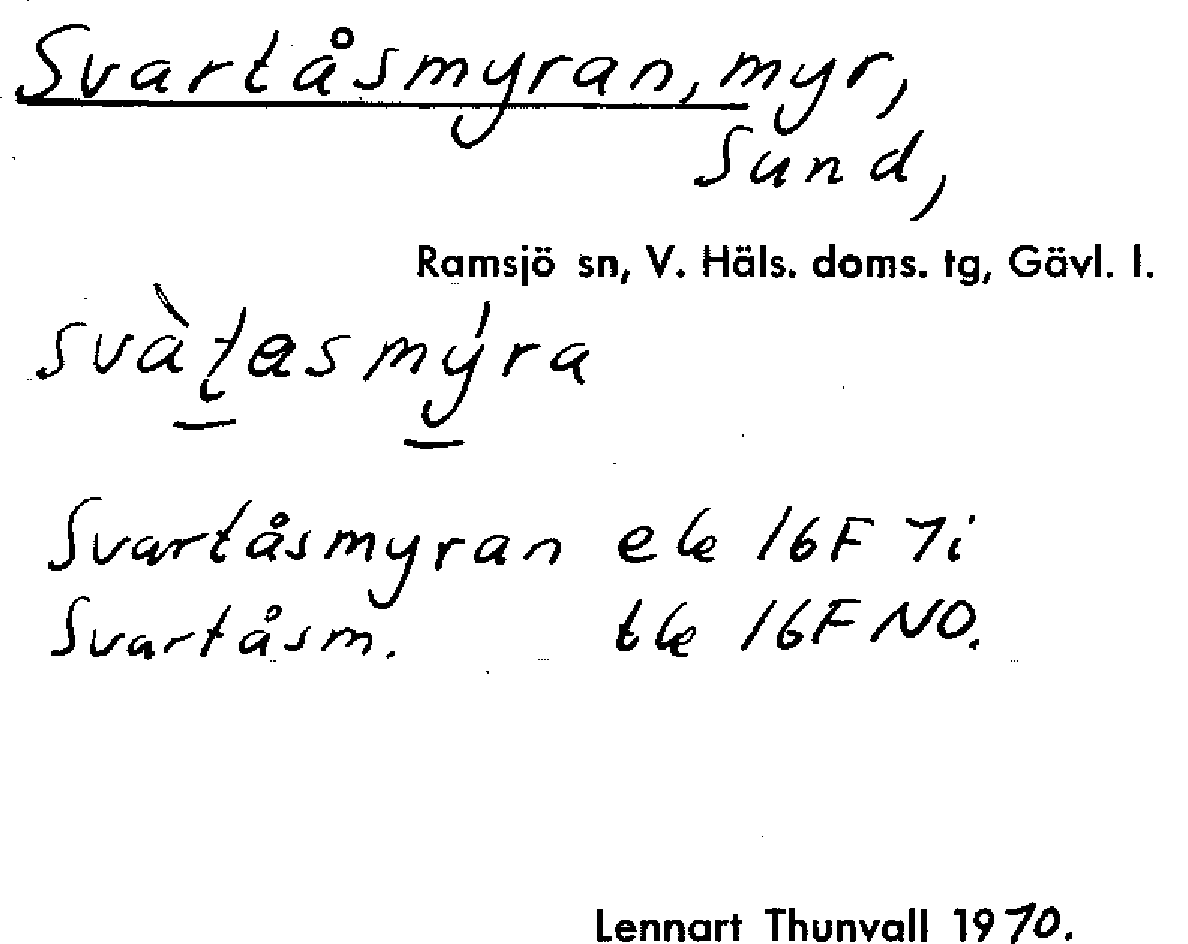 Svartåsmyran, myr,
Sund,
Ramsjö sn, V. Häls. doms. tg, Gävl. l.
svàʈasmýra
Svartåsmyran ek 16F 7i
Svartåsm. tk 16F NO.
Lennart Thunvall 1970.